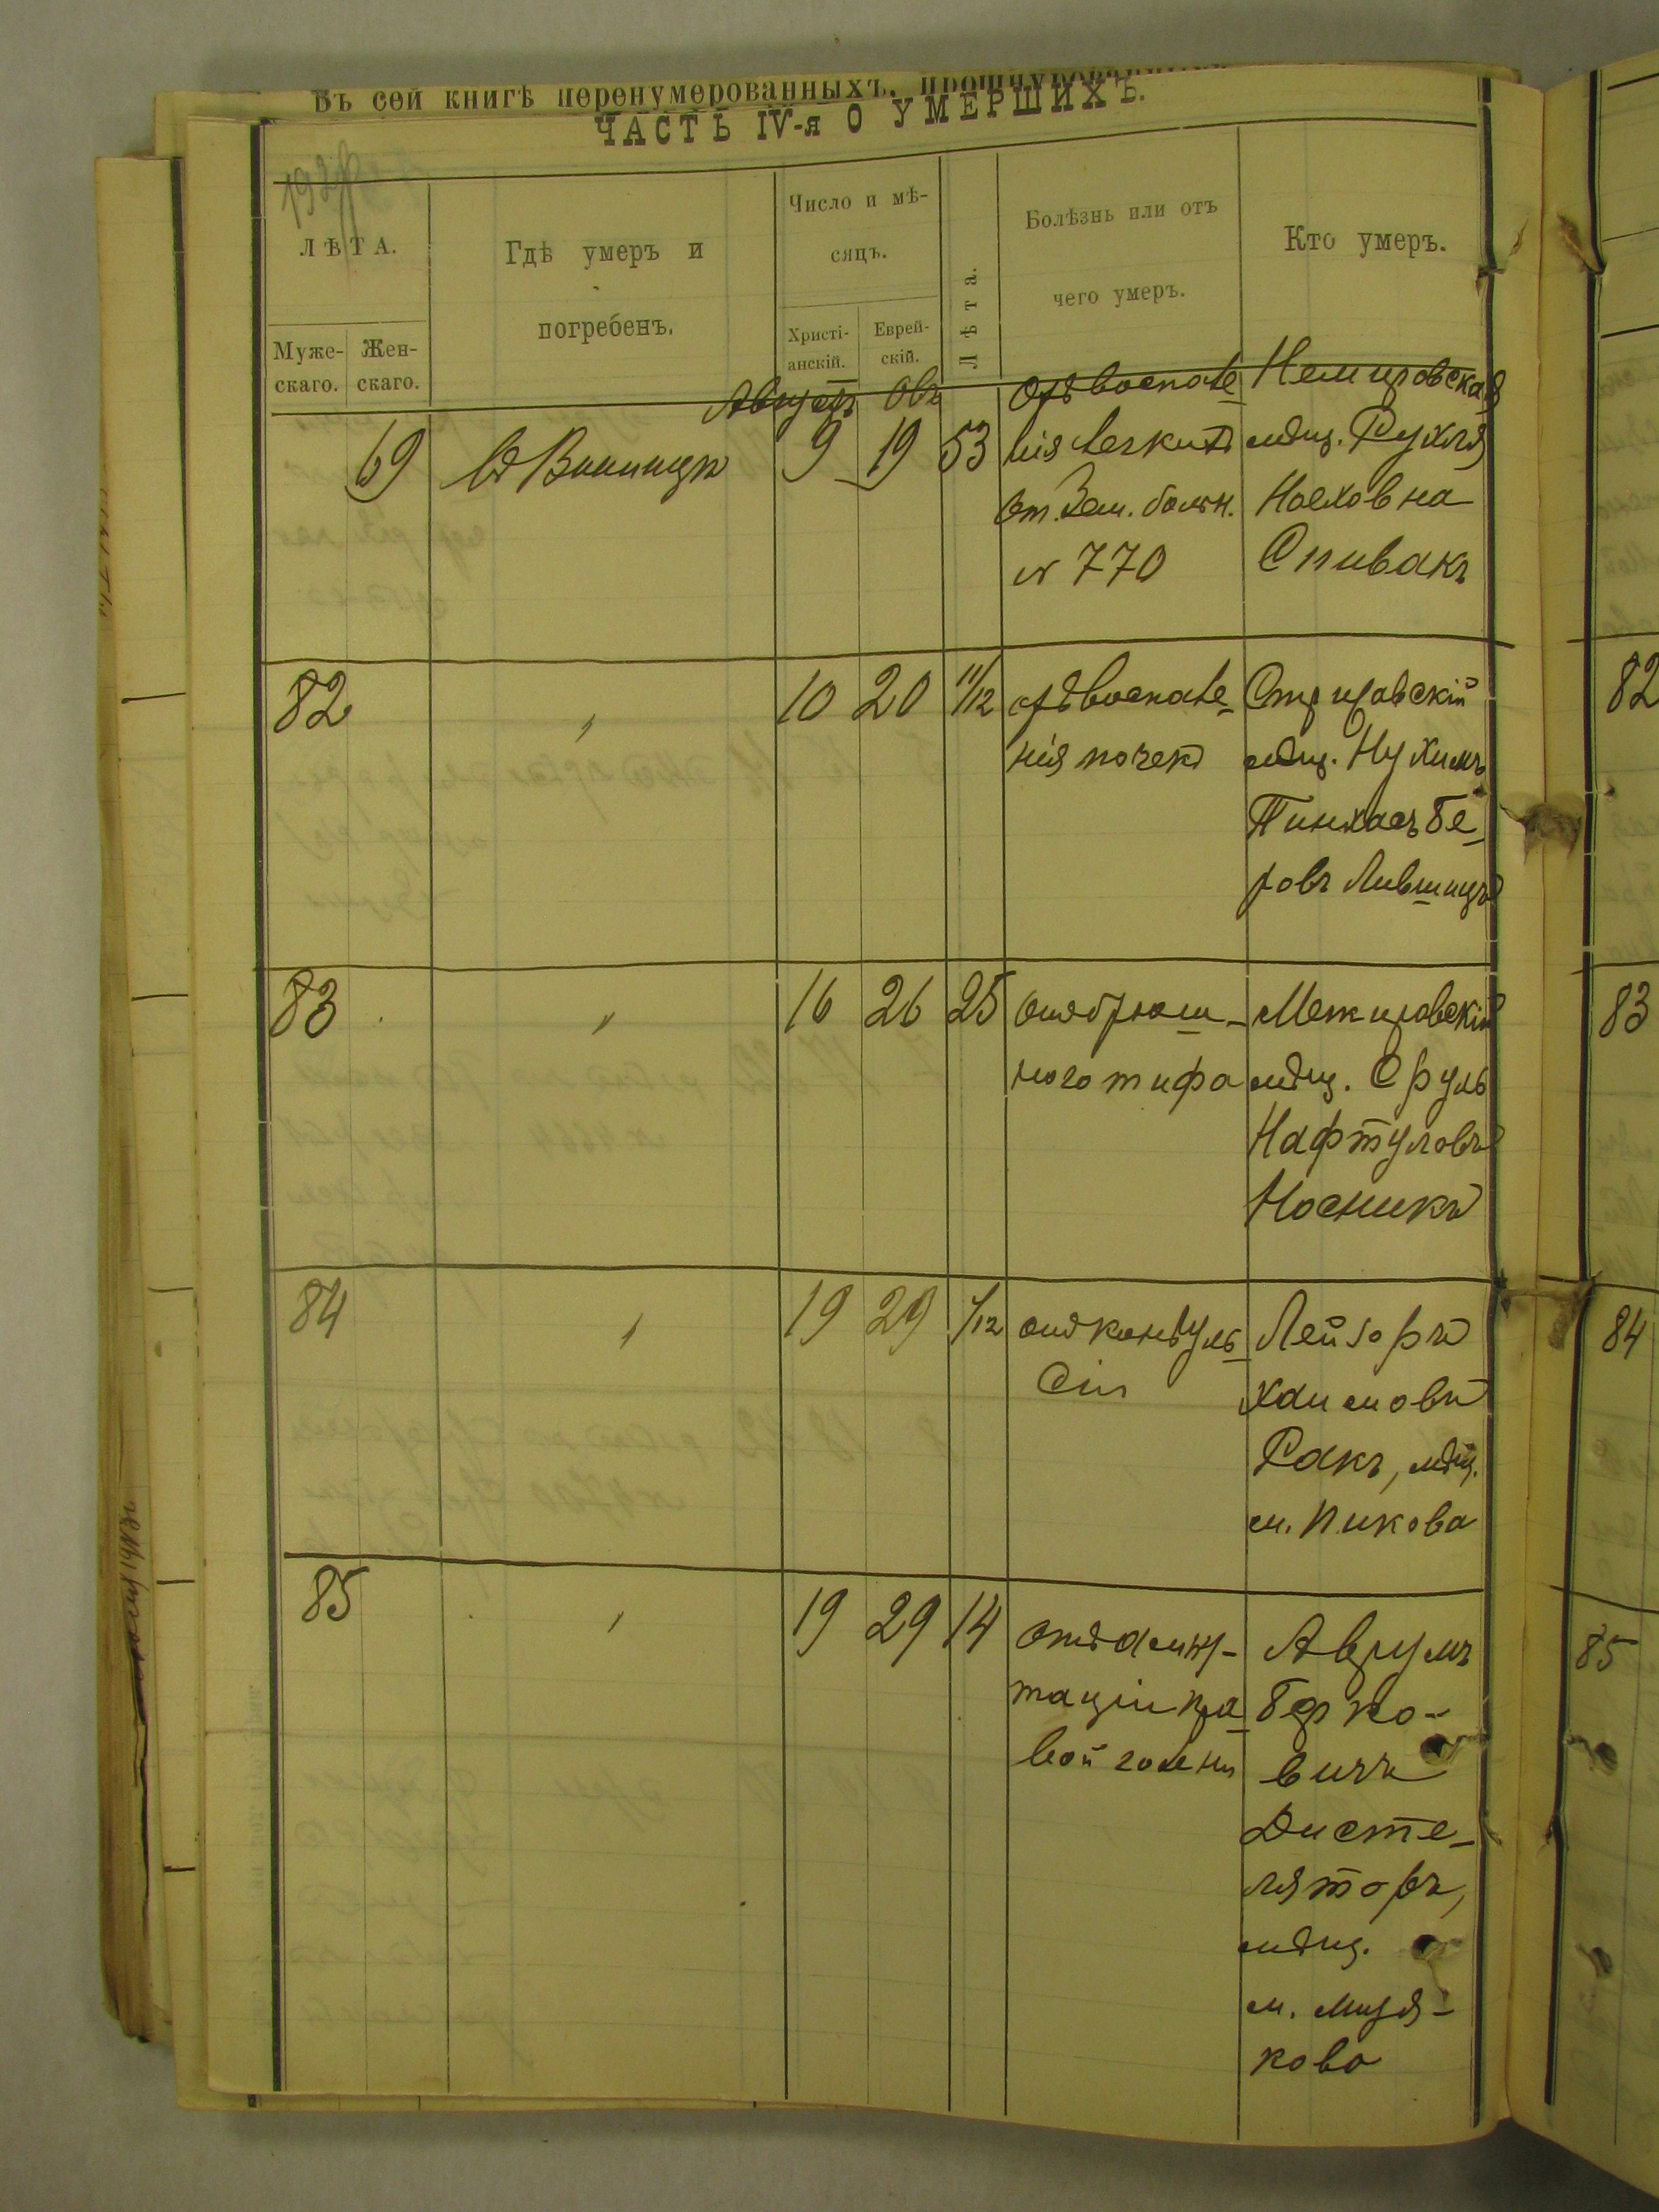 Въ сей книгѣ перенумерованныхъ, прошнурованныхъ
ЧАСТЬ IV-я О УМЕРШИХЪ.
ЛѢТА.
Муже-
скаго.
Жен-
скаго.
Гдѣ умеръ и
погребенъ.
Число и мѣ-
сяцъ.
Христі-
анскій.
Еврей-
скій.
Лѣта.
Болѣзнь или отъ
чего умеръ.
Кто умеръ.
Августъ Овъ
69
Въ Винницѣ
9
19
53
отъ воспале
нія легкихъ
от. Зем. больн.
№ 770
Немировская
мѣщ. Рухля
Ноеховна
Спивакъ
82
"
10
20
11/12
отъ воспале-
нія почекъ
Стрижавскій
мѣщ. Нухимъ
Пинхасъ Бе-
ровъ Лившицъ
82
83
"
16
26
25
отъ брюш-
ного тифа
Межировскій
мѣщ. Сруль
Нафтуловъ
Носникъ
83
84
"
19
29
1/12
отъ конвуль-
сіи
Лейзоръ
Хаимовъ
Ракъ, мѣщ.
м. Пикова
84
85
"
19
29
14
отъ ампу-
таціи пра-
вой голени
Аврумъ
Берко-
вичъ
Дисте-
ляторъ,
мѣщ.
м. Мизя-
кова
85